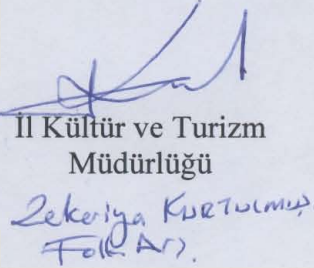 İl Kültür ve Turizm
Müdürlüğü
Zekeriya KURTULMUŞ
Folk Arş.